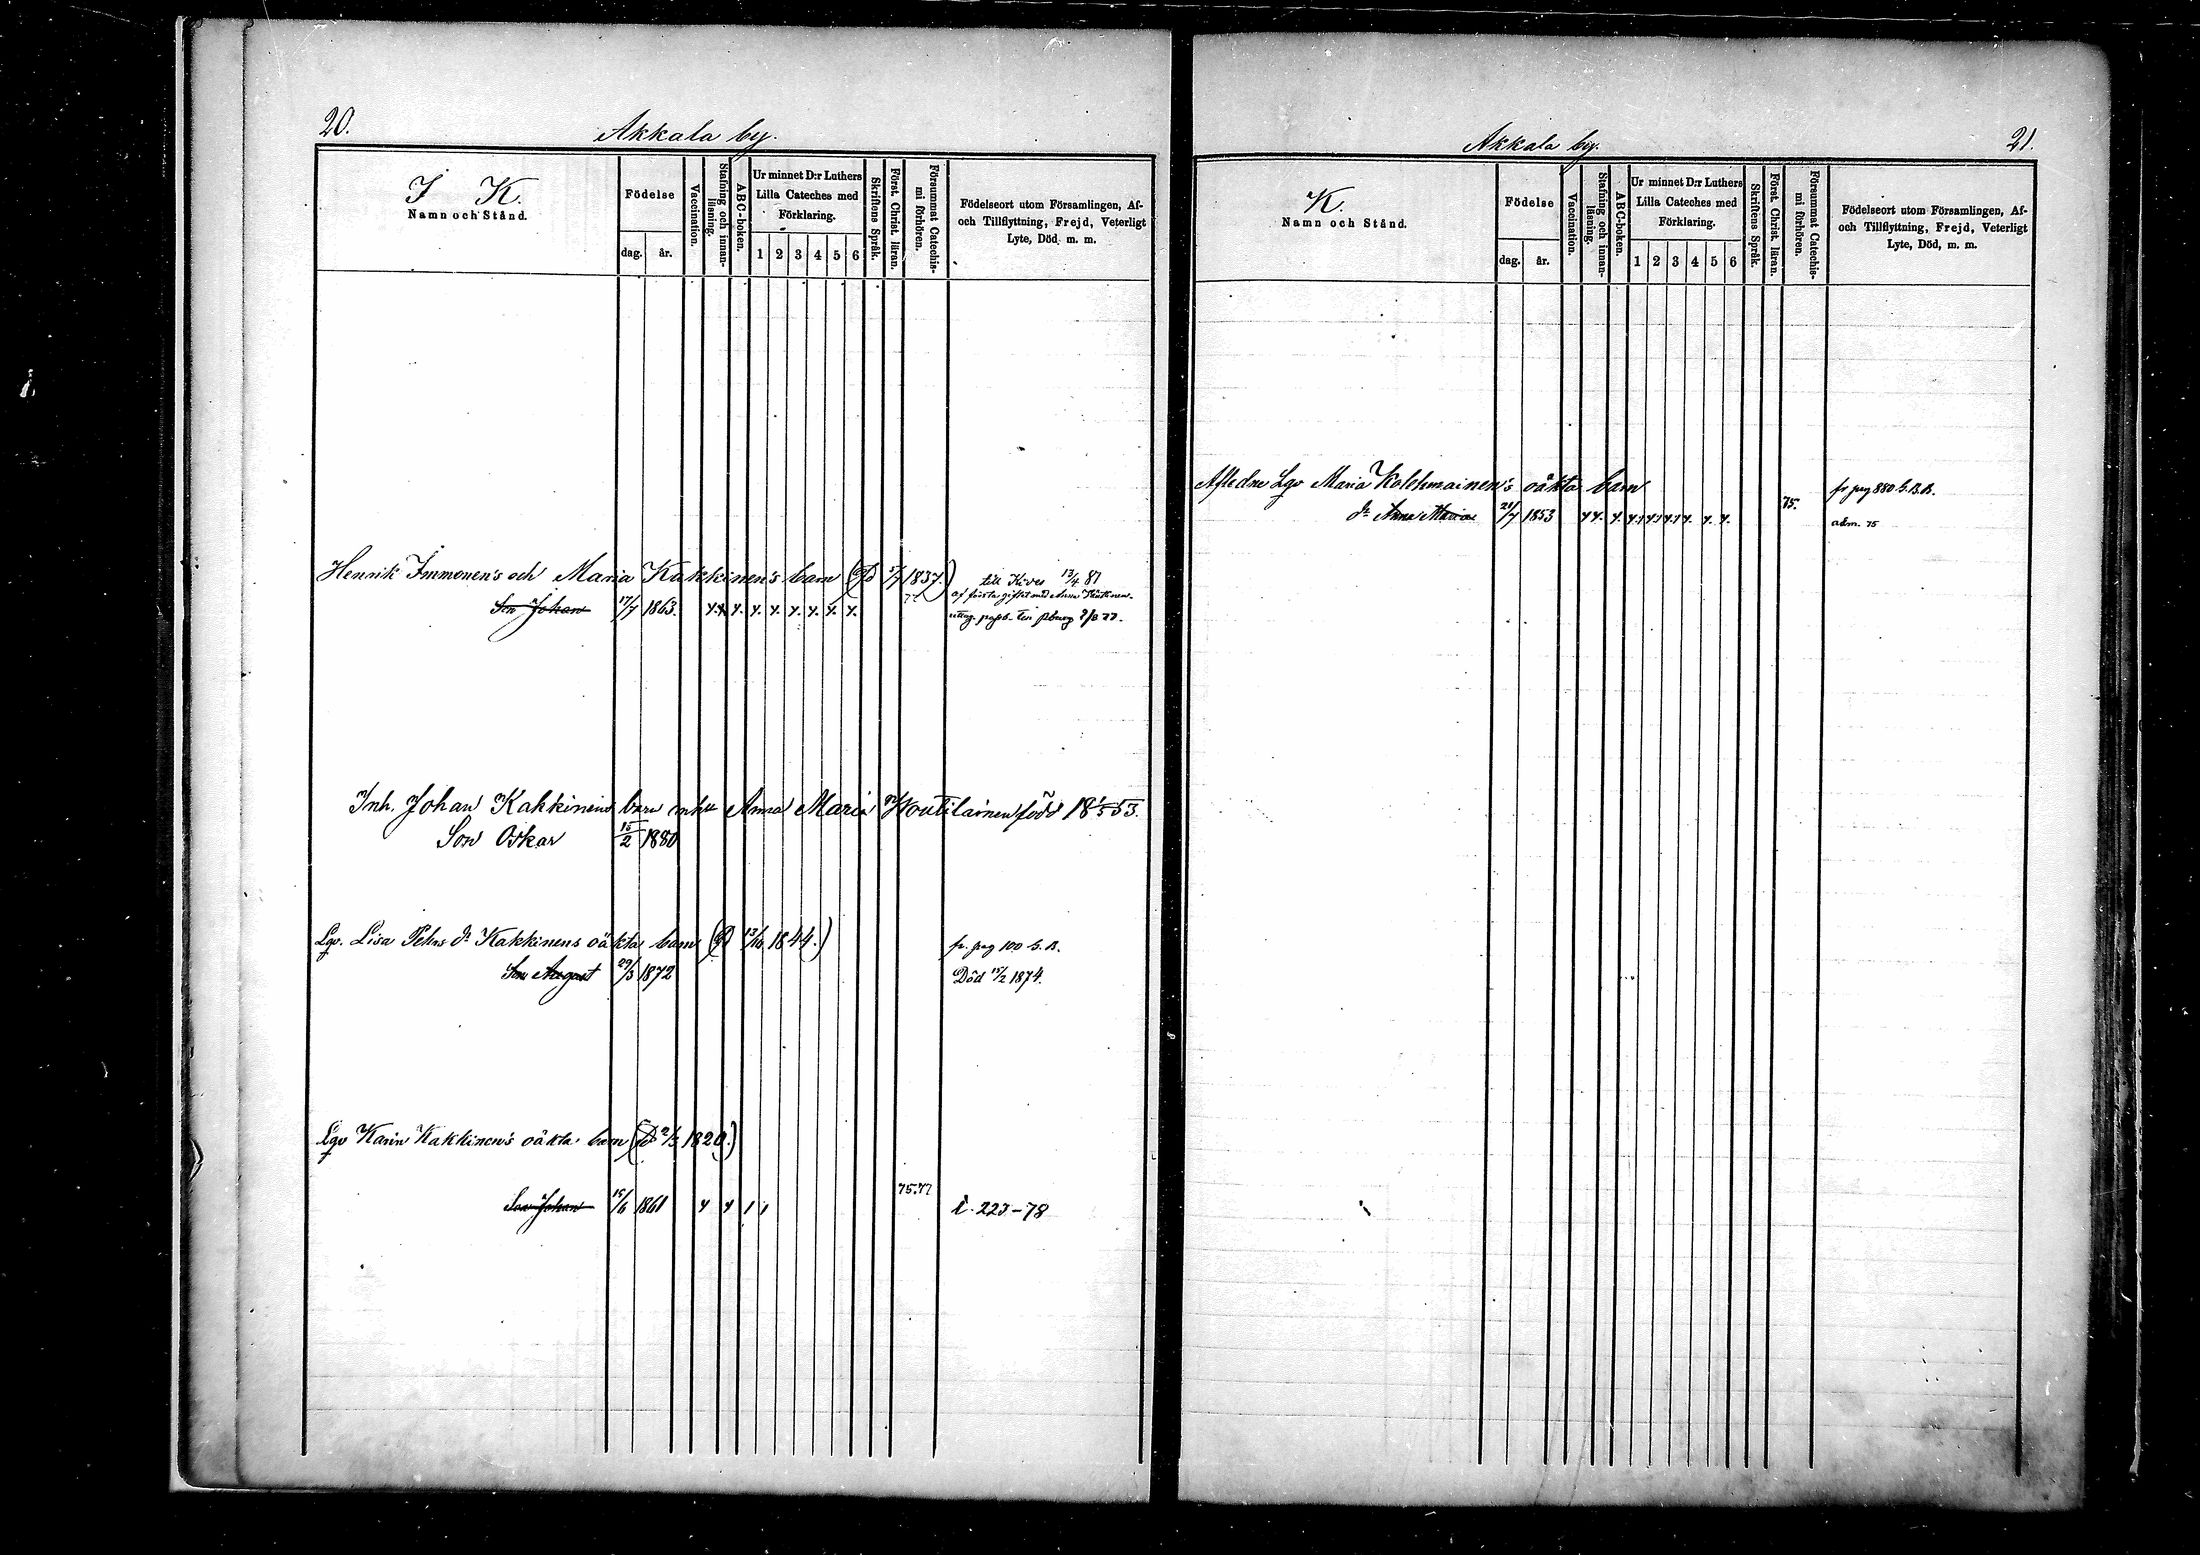 20.
Akkala by.
I K.
Namn och Stånd.
Födelse
dag. år.
Vaccination.
Stafning och innan-
läsning.
ABC-boken.
Ur minnet D:r Luthers
Lilla Cateches med
Förklaring.
1 2 3 4 5 6
Skriftens Språk.
Först. Christ. läran.
Försummat Catechis-
mi förhören.
Födelseort utom Församlingen, Af-
och Tillflyttning, Frejd, Veterligt
Lyte, Död, m. m.
Henrik Immonen's och Maria Kakkinen's barn 1837.) till Kives 13/4 81
af första giftet med Anna
Son Johan 17/7 1863. y. y. y. y. y. y. y. y. y.
Inh. Johan Kakkinens barn mhu Anna Maria Woutilainen född 18 1/5 53.
Son Oskar 15/2 1880
Lgo. Lisa Pehrs dr Kakkinens oäkta barn 13/10 1844.) fr. pag 100 b. B.
Son August 29/3 1872 Död 15/2 1874.
Lgo Karin Kakkinen's oäkta barn 2/3 1820.)
75.77
Son Johan 15/6 1861 y y 1 1 i. 223-78
Akkala by.
21.
K.
Namn och Stånd.
Födelse
dag. år.
Vaccination.
Stafning och innan-
läsning.
ABC-boken.
Ur minnet D:r Luthers
Lilla Cateches med
Förklaring.
1 2 3 4 5 6
Skriftens Språk.
Först. Christ. läran.
Försummat Catechis-
mi förhören.
Födelseort utom Församlingen, Af-
och Tillflyttning, Frejd, Veterligt
Lyte, Död, m. m.
Afledne Lgo Maria Kolehmainen's oäkta barn fr pag 880 b. B.
dr Anna Maria 21/7 1853 y y. y. y. y. y. y. y. y. 75. adm. 75